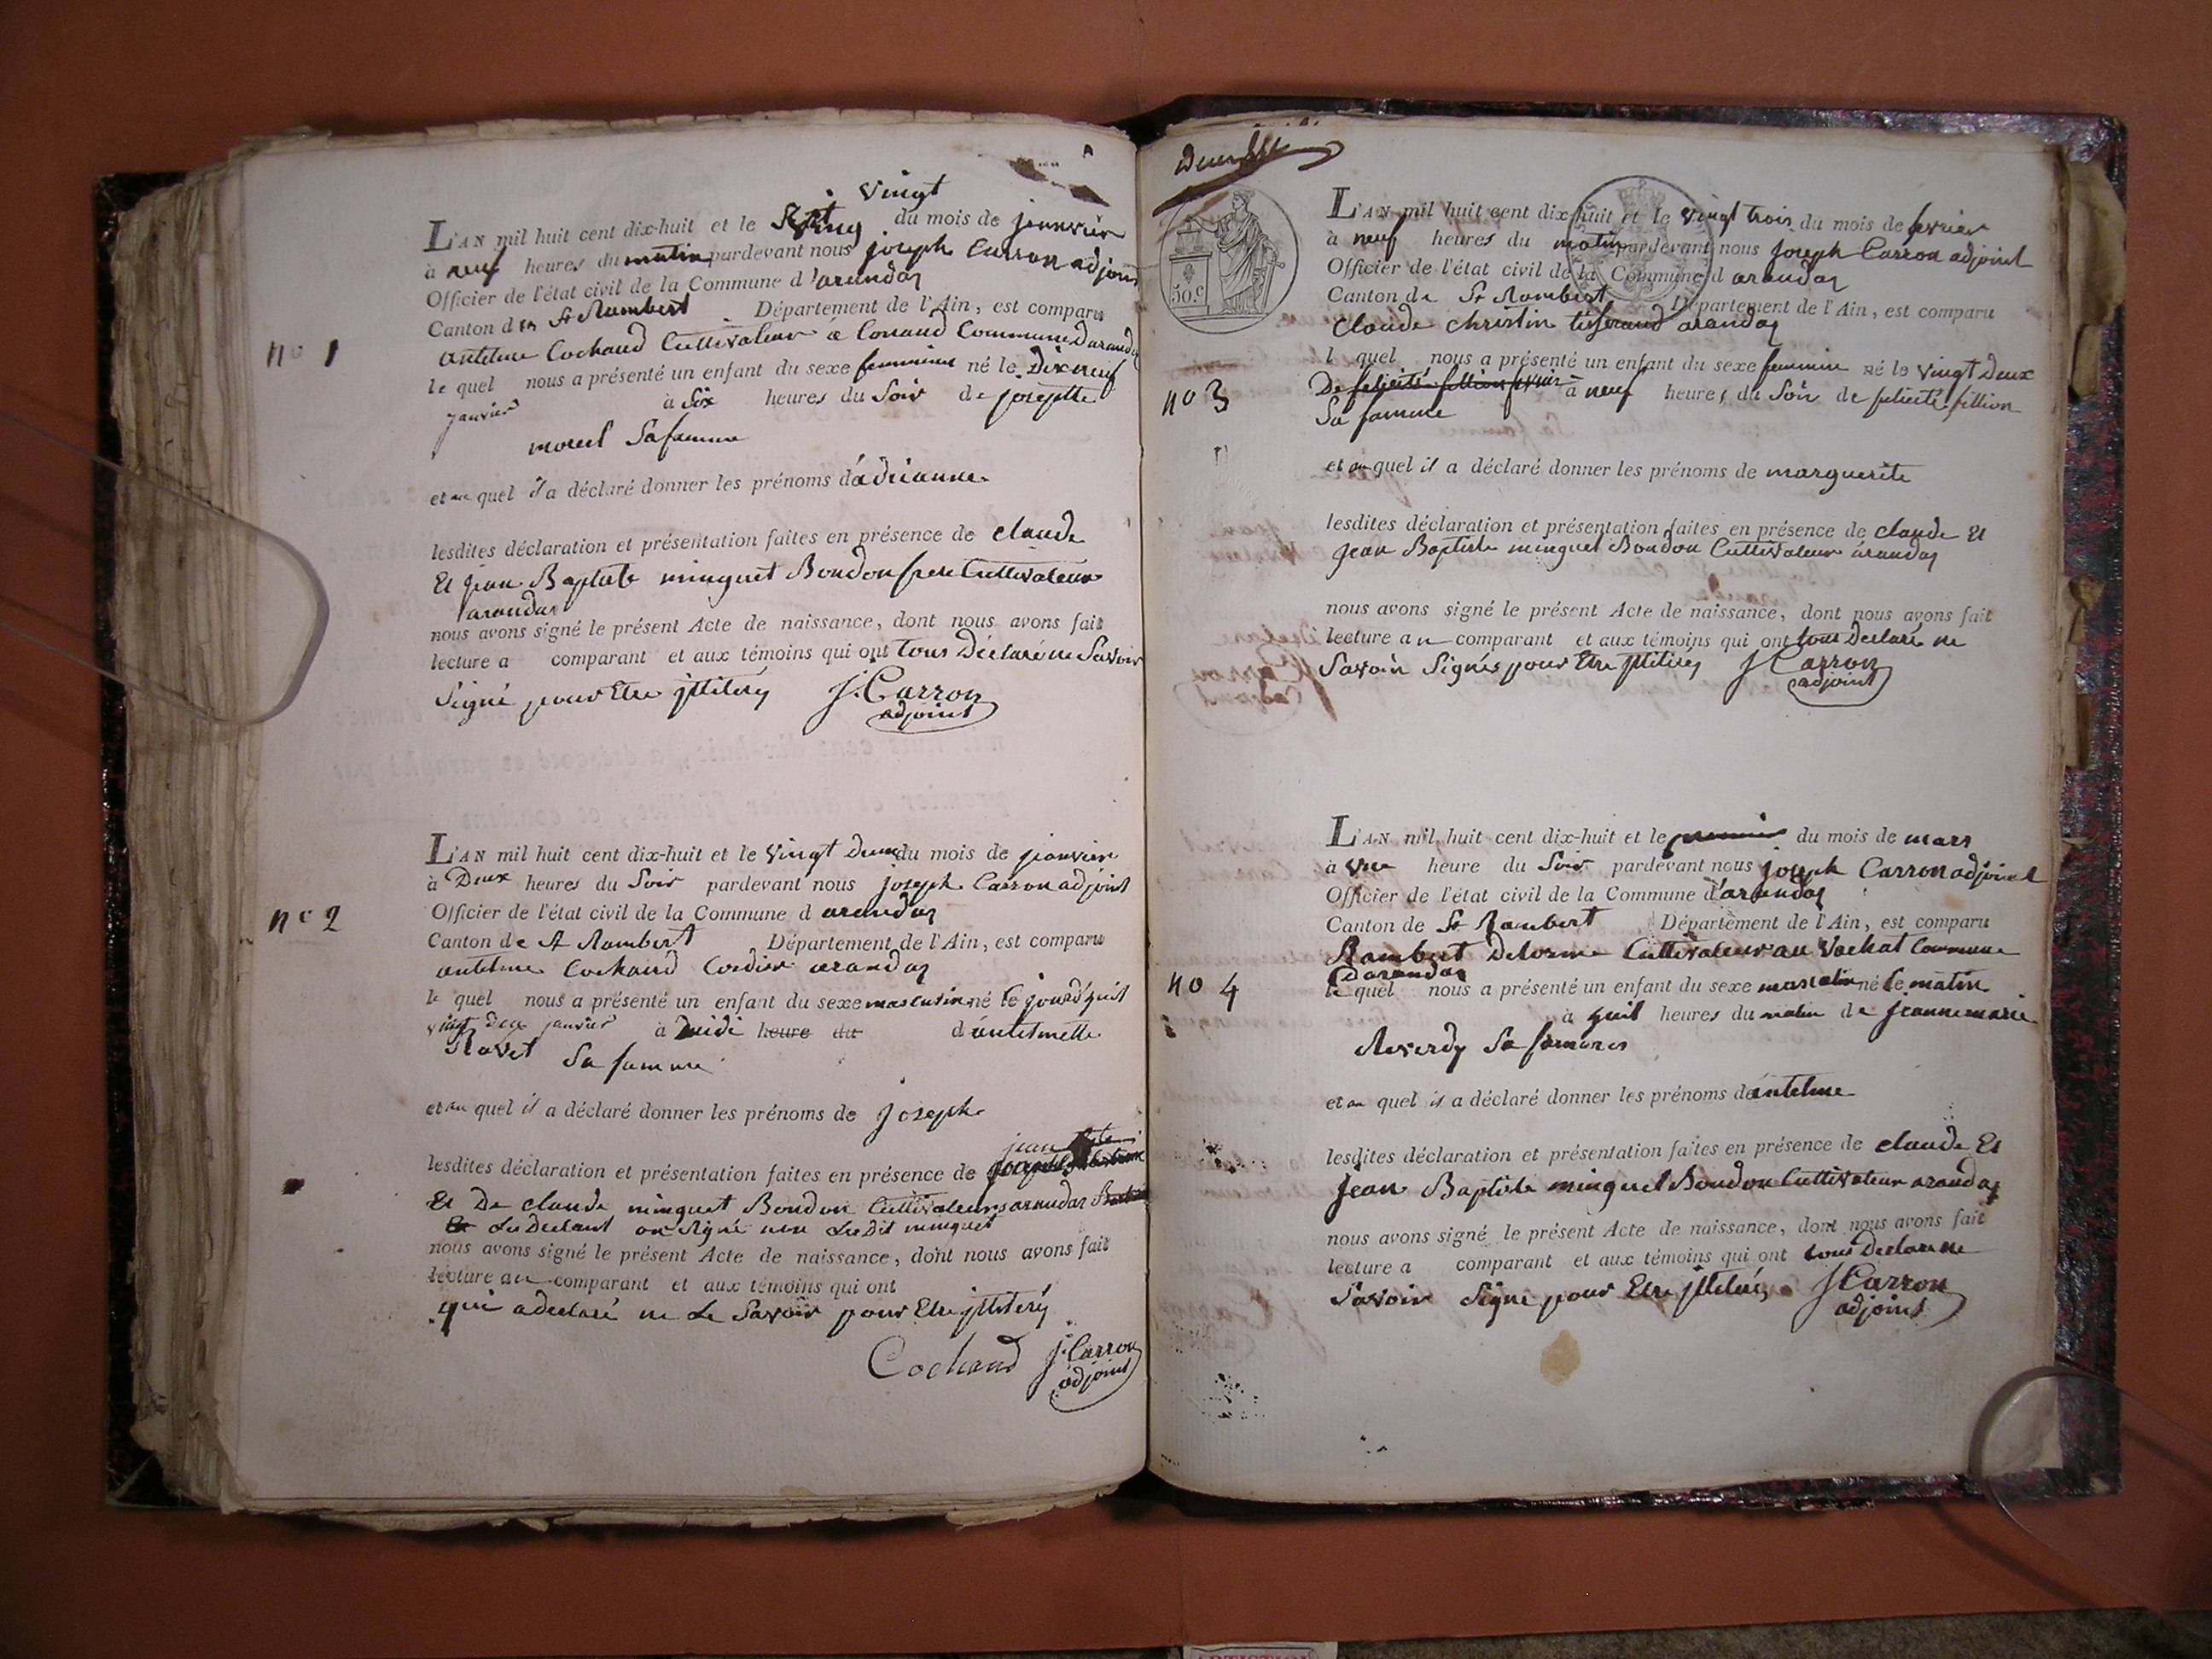 Vingt
L'AN mil huit cent dix-huit et le du mois de janvier
à neuf heures du matin pardevant nous joseph Carron adjoint
Officier de l'état civil de la Commune d'arandas
Canton de St Rambert Département de l'Ain, est comparu
n° 1
antelme Cochaud Cultivateur à Conand Commune d'arandas
le quel nous a présenté un enfant du sexe feminin né le Dix neuf
janvier à Six heures du Soir de josephte
morel Sa famme
et au quel il a déclaré donner les prénoms d'adrianne
lesdites déclaration et présentation faites en présence de claude
Et jean Baptiste minguet Boudon frere Cultivateur
arandas
nous avons signé le présent Acte de naissance, dont nous avons fait
lecture a comparant et aux témoins qui ont tous Déclaré ne Savoir
Signé pour Etre
J. Carron
adjoint
L'AN mil huit cent dix-huit et le Vingt Deux du mois de janvier
à Deux heures du Soir pardevant nous joseph Carron adjoint
n° 2
Officier de l'état civil de la Commune d arandas
Canton de St Rambert Département de l'Ain, est comparu
antelme Cochaud Cordier arandas
le quel nous a présenté un enfant du sexe masculin né le jourd'huit
vingt deux janvier à midi heure du d'antelmette
Ravet Sa famme
et au quel il a déclaré donner les prénoms de Joseph
jean
lesdites déclaration et présentation faites en présence de
Et De claude minguet Boudon Cultivateurs arandas
Le Declant on Signé non Ledit minguet
nous avons signé le présent Acte de naissance, dont nous avons fait
lecture au comparant et aux témoins qui ont
qui a declaré ne Le Savoir pour Etre
Cochaud J. Carron
adjoint
50.c
L'AN mil huit cent dix-huit et le vingt trois du mois de fevrier
à neuf heures du matin pardevant nous Joseph Carron adjoint
Officier de l'état civil de la Commune d arandas
Canton de St Rambert Département de l'Ain, est comparu
Claude christin tisserand arandas
l quel nous a présenté un enfant du sexe feminin né le vingt Deux
n° 3
De felicité fillion fevrier à neuf heures du Soir de felicité fillion
Sa famme
et au quel il a déclaré donner les prénoms de marguerite
lesdites déclaration et présentation faites en présence de claude Et
jean Baptiste minguet Boudon Cultivateur arandas
nous avons signé le présent Acte de naissance, dont nous avons fait
lecture au comparant et aux témoins qui ont tous Declaré ne
Savoir Signés pour Etre
J Carron
adjoint
L'AN mil huit cent dix-huit et le premier du mois de mars
à une heure du Soir pardevant nous joseph Carron adjoint
Officier de l'état civil de la Commune d'arandas
Canton de St Rambert Département de l'Ain, est comparu
Rambert Delorme Cultivateur au Vachat Commune
Darandas
n° 4
le quel nous a présenté un enfant du sexe masculin né le matin
à huit heures du matin de jeanne marie
Reverdy Sa
et au quel il a déclaré donner les prénoms d'antelme
lesdites déclaration et présentation faites en présence de claude Et
jean Baptiste minguet Boudon Cultivateur arandas
nous avons signé le présent Acte de naissance, dont nous avons fait
lecture a comparant et aux témoins qui ont tous Declare ne
Savoir Signé pour Etre
J Carron
adjoint